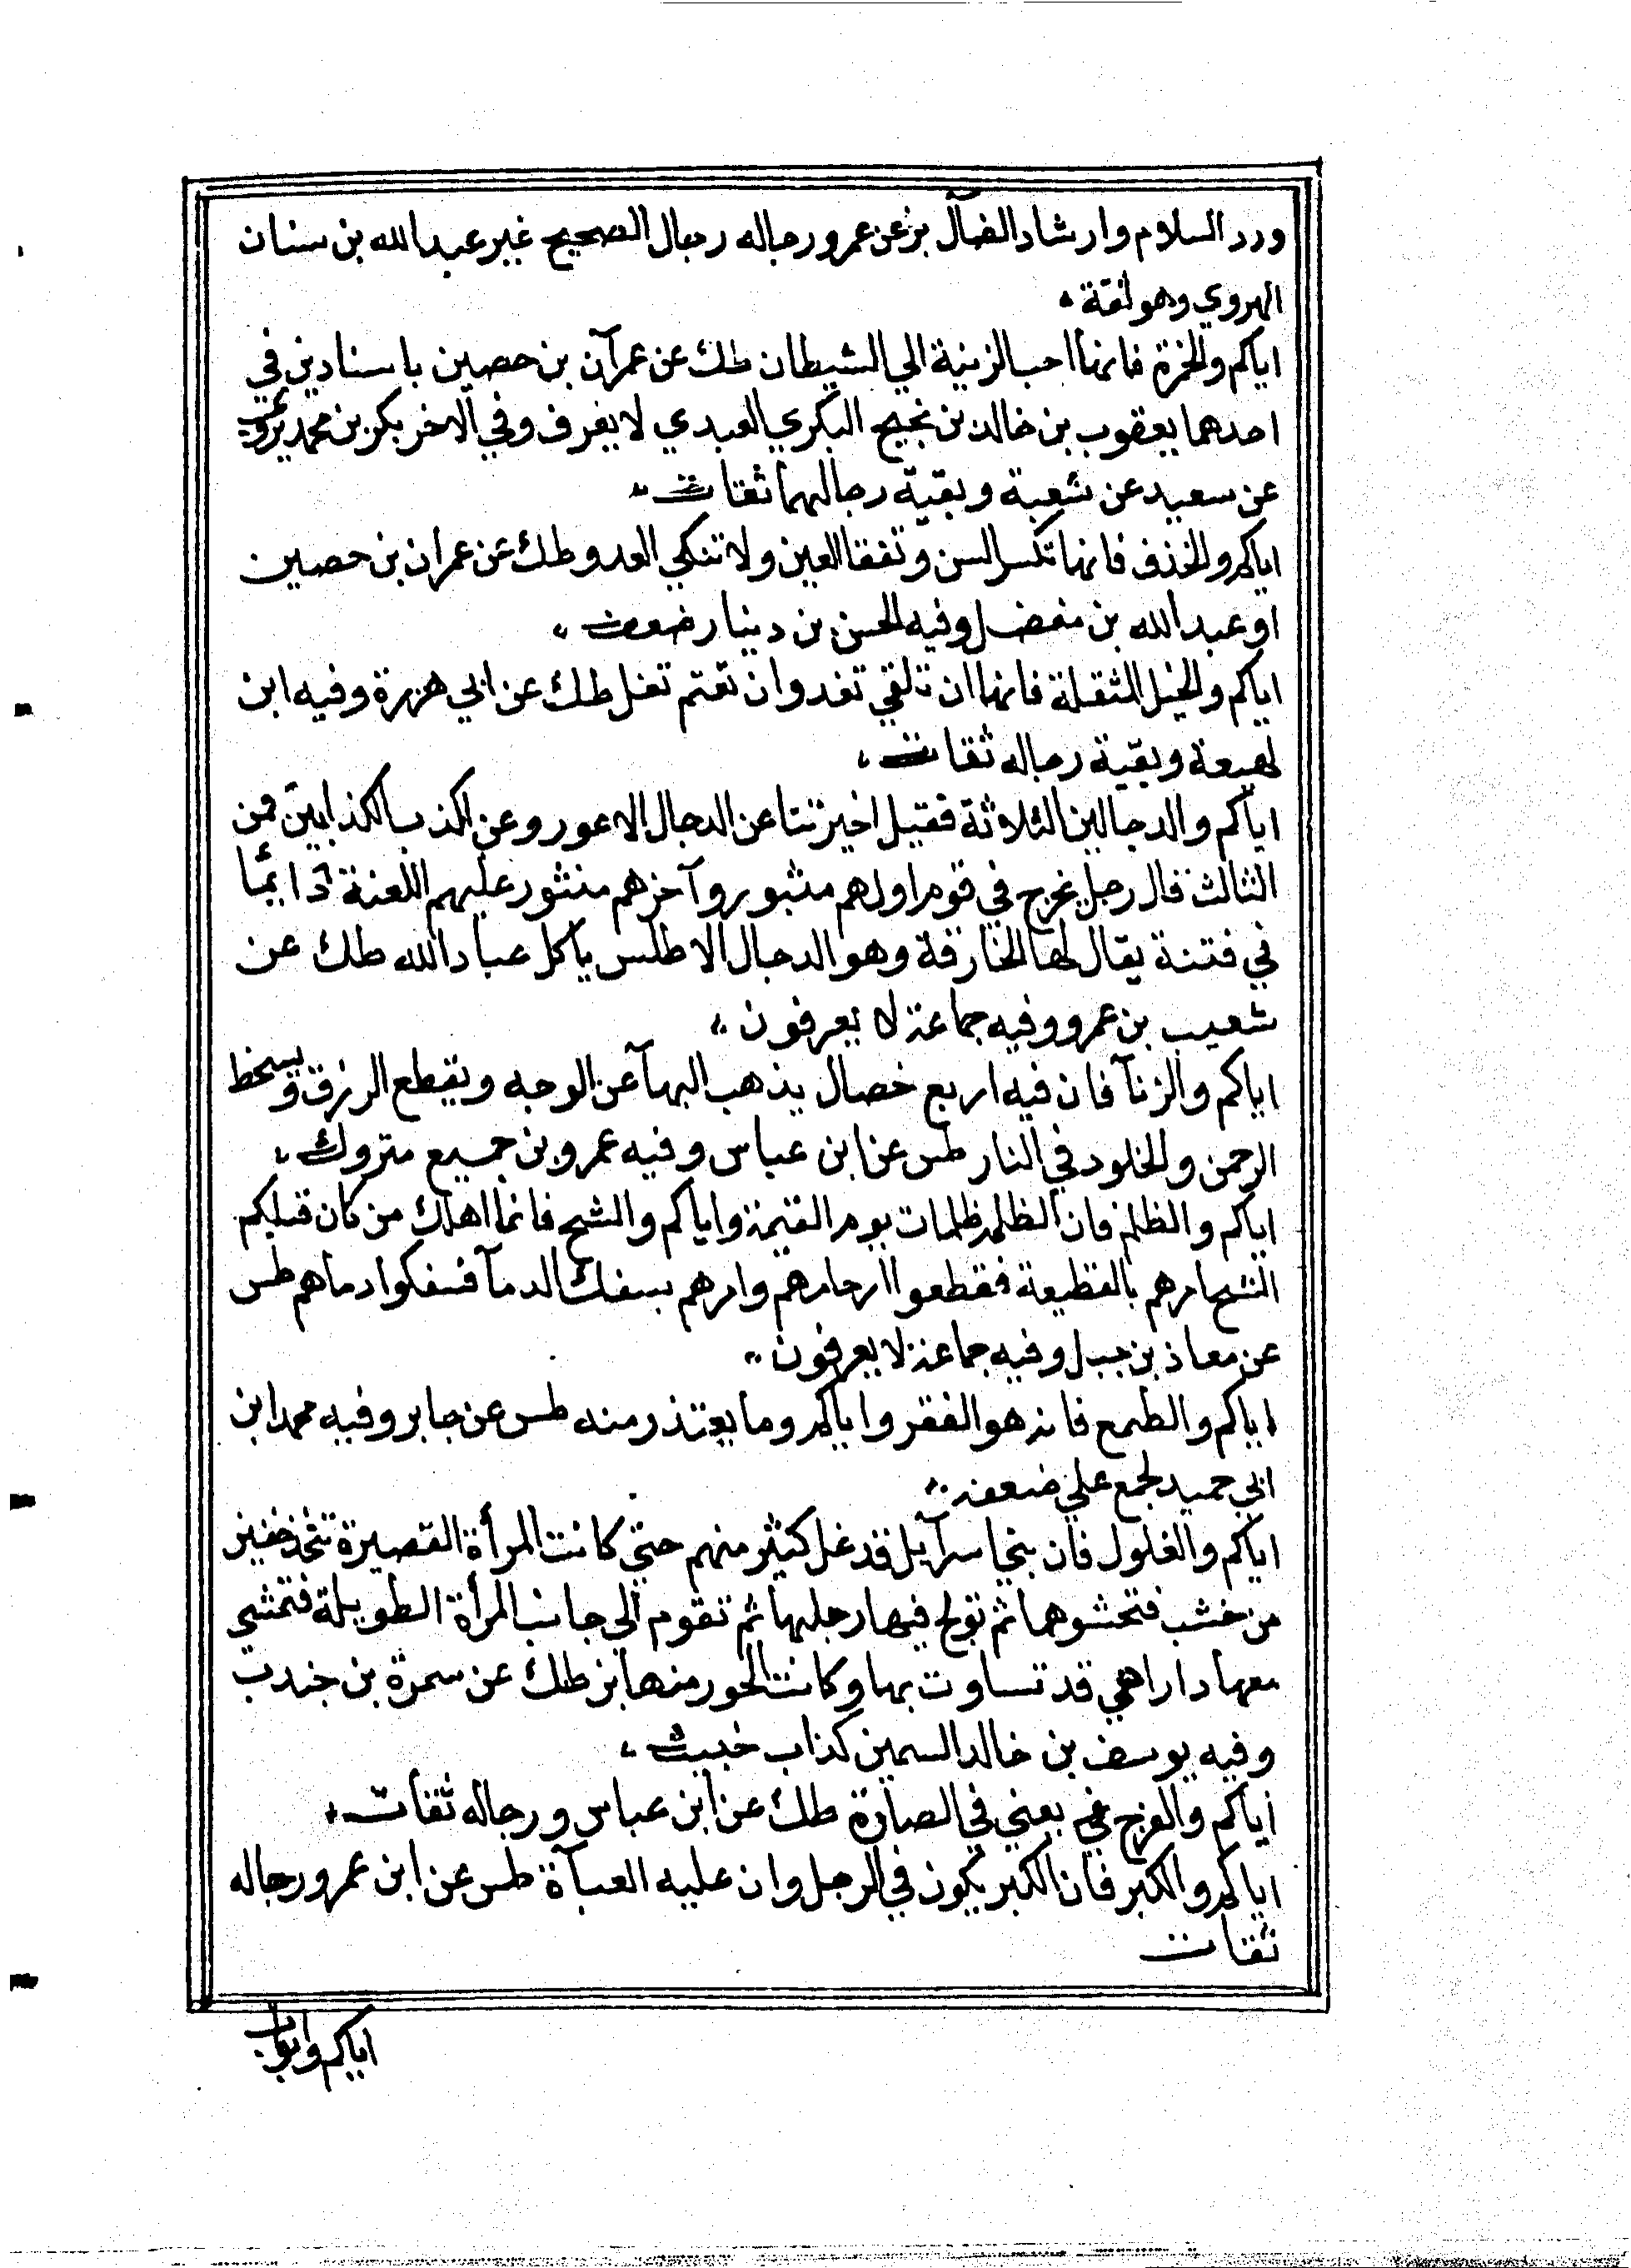 ورد السلام وارشاد الضآل بز عن عمر ورجاله رجال الصحيح غير عبد الله بن سنان
الهروي وهو ثقة
اياكم والحمرة فانها احب الزينة الي الشيطان طك عن عمرآن بن حصين باسنادين في
احدهما يعقوب بن خالد بن نجيح البكري العبدي لا يعرف وفي الاخر بكر بن محمد يروي
عن سعيد عن شعبة وبقية رجالهما ثقات
اياكم والخذف فانها تكسر السن وتفقا العين ولا تنكي العدو طك عن عمران بن حصين
او عبد الله بن مغفل وفيه الحسن بن دينار ضعف
اياكم والخيل المثقلة فانها ان تلقي تغدر وان تغتم تغل طك عن ابي هريرة وفيه ابن
لهيعة وبقية رجاله ثقات
اياكم والدجالين الثلاثة فقيل اخبرتنا عن الدجال الاعور وعن اكذب الكذابين فمن
الثالث قال رجل يخرج في قوم اولهم مثبور وآخرهم منثور عليهم اللعنة دايما
في فتنة يقال لها الخارفة وهو الدجال الاطلس ياكل عباد الله طك عن
شعيب بن عمرو وفيه جماعة لا يعرفون
اياكم والزنآ فان فيه اربع خصال يذهب البهآ عن الوجه ويقطع الرزق ويسخط
الرحمن والخلود في النار طس عن ابن عباس وفيه عمرو بن جميع متروك
اياكم والظلم فان الظلم ظلمات يوم القيمة واياكم والشح فانما اهلك من كان قبلكم
الشح امرهم بالقطيعة فقطعوا ارحامهم وامرهم بسفك الدمآ فسفكوا دماهم طس
عن معاذ بن جبل وفيه جماعة لا يعرفون
اياكم والطمع فانه هو الفقر واياكم وما يعتذر منه طس عن جابر وفيه محمد ابن
ابي حميد لجمع علي ضعفه
اياكم والغلول فان بني اسرآيل قد غل كثير منهم حتي كانت المرأة القصيرة تتخذ خفين
من خشب فتحشوهما ثم تولج فيهما رجليها ثم تقوم الي جانب المرأة الطويلة فتمشي
معها دارا هي قد تساوت بها وكانت الحور منها بز طك عن سمرة بن جندب
وفيه يوسف بن خالد السمين كذاب خبيث
اياكم والفرج يعني في الصلاة طك عن ابن عباس ورجاله ثقات
اياكم والكبر فان الكبر يكون في الرجل وان عليه العبآة طس عن ابن عمر ورجاله
ثقات
اياكم وابواب